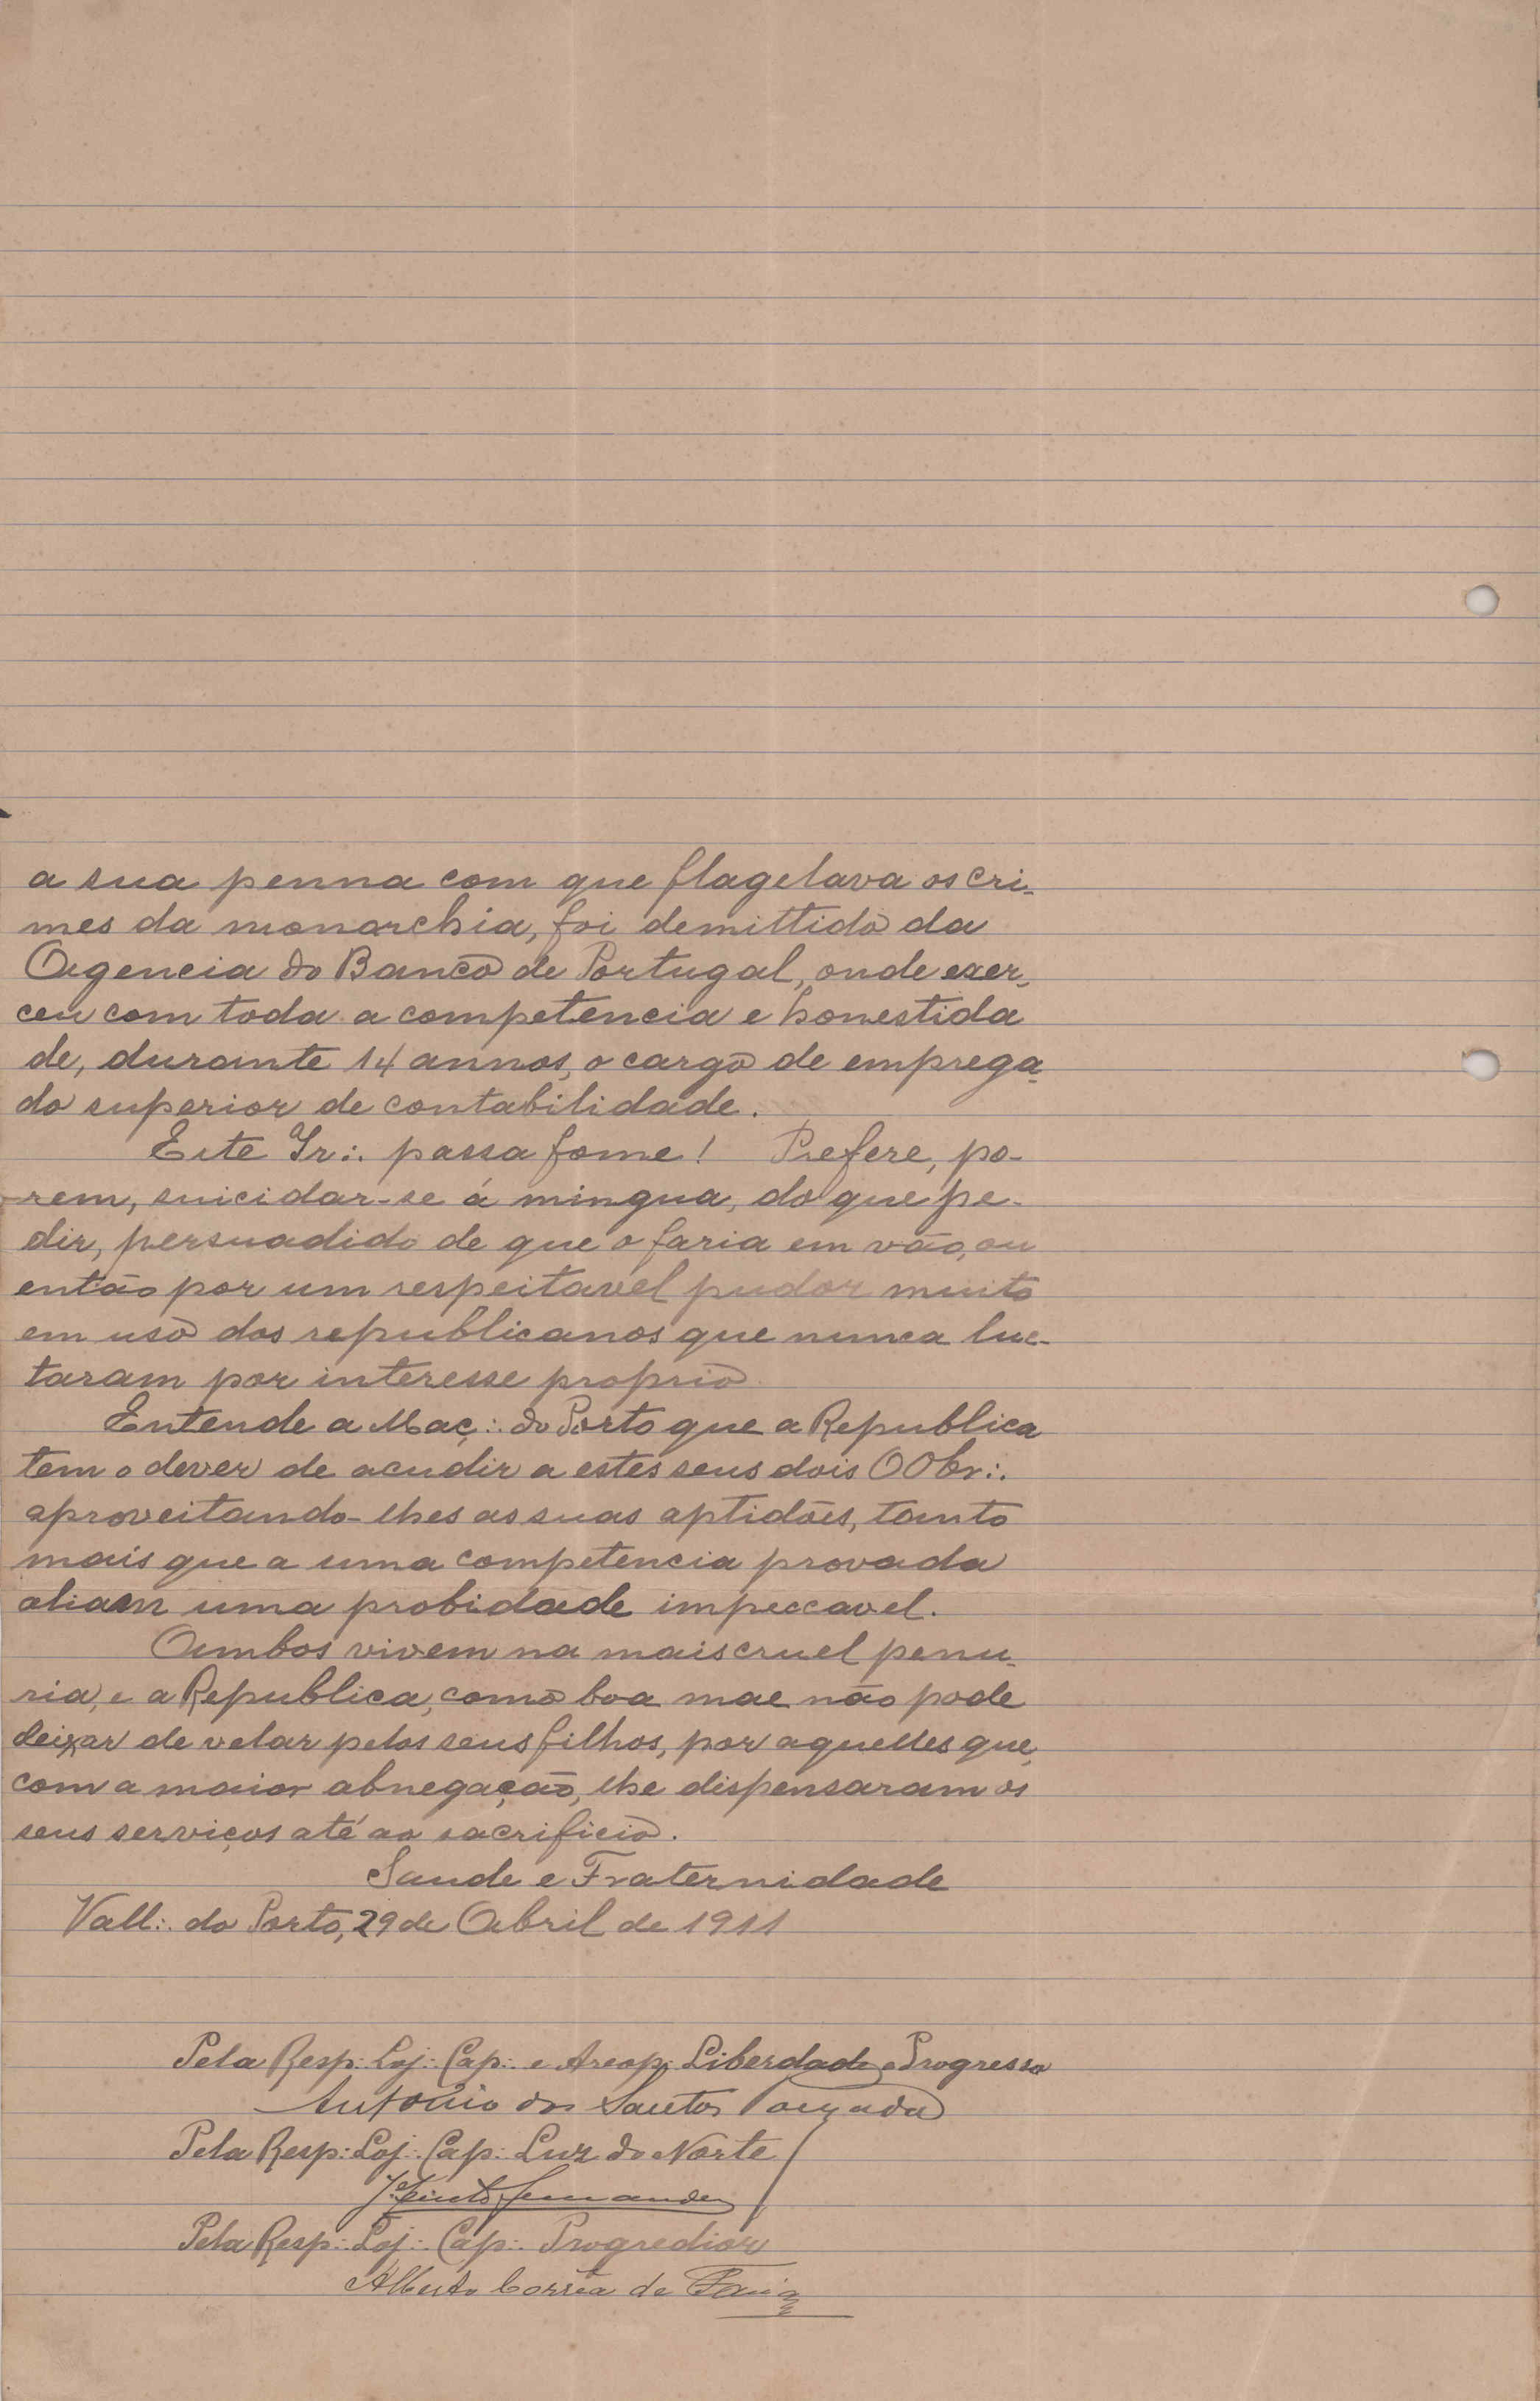 a sua penna com que flagelava os cri-
mes da monarchia, foi demittido da
Agencia do Banco de Portugal, onde exer-
ceu com toda a competencia e honestida
de, durante 14 annos, o cargo de emprega-
do superior de contabilidade.
Este Ir∴ passa fome! Prefere, po-
rem, suicidar-se á mingua, do que pe-
dir, persuadido de que o faria em vão, ou
então por um respeitavel pudor muito
em uso dos republicanos que nunca luc-
taram por interesse proprio.
Entende a Maç∴ do Porto que a Republica
tem o dever de acudir a estes seus dois OObr∴
aproveitando-lhes as suas aptidões, tanto
mais que a uma competencia provada
aliam uma probidade impeccavel.
Ambos vivem na mais cruel penu-
ria, e a Republica, como boa mae não pode
deixar de velar pelos seus filhos, por aquelles que,
com a maior abnegação, lhe dispensaram os
seus serviços até ao sacrificio.
Saude e Fraternidade
Vall∴ do Porto, 29 de Abril de 1911
Pela Resp∴ Loj∴ Cap∴ e Areop∴ Liberdade e Progresso
Antonio dos Santos
Pela Resp∴ Loj∴ Cap∴ Luz do Norte
Pinto Fernandes
Pela Resp∴ Loj∴ Cap∴ Progredior
Alberto Corrêa de Faria